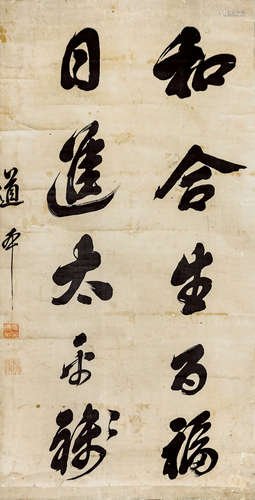 和合生百福
日進太平錢
道平